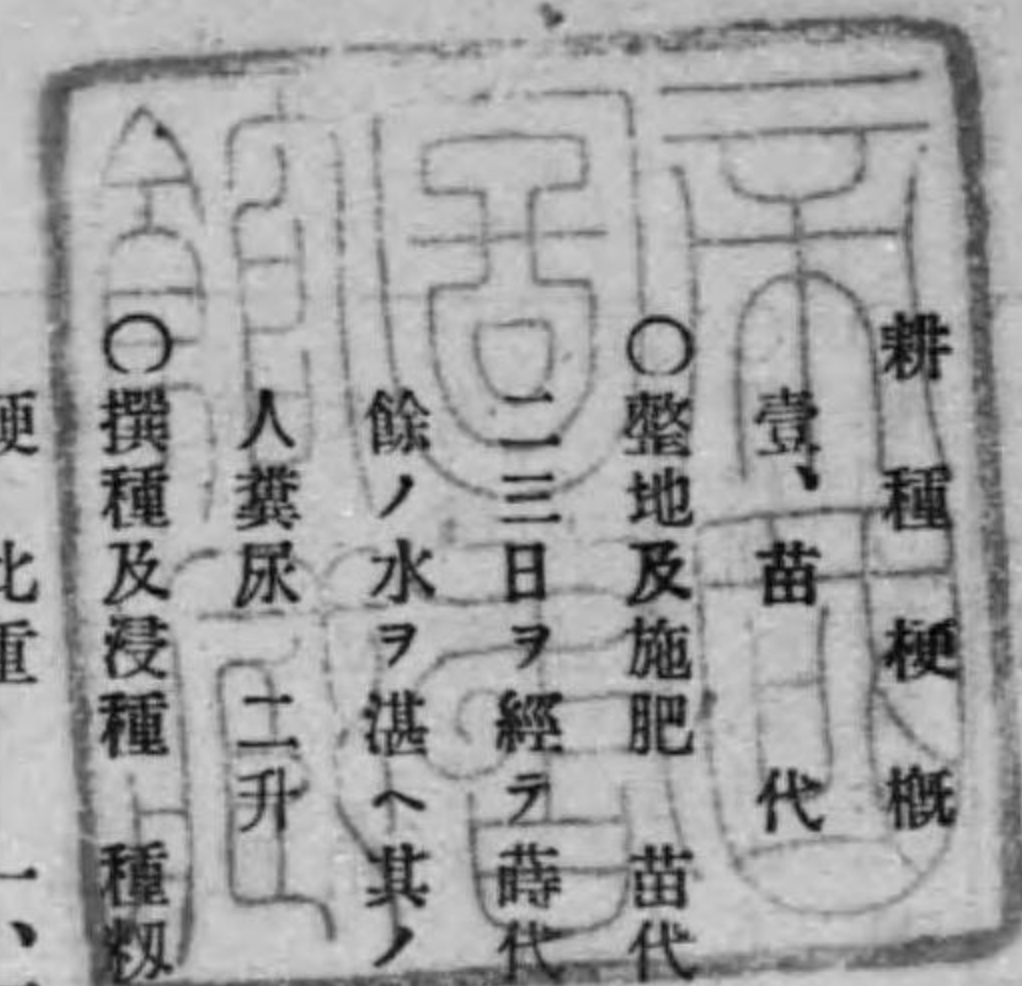 耕種梗概
壹、苗代
〇整地及施肥　苗代
二三日ヲ經テ蒔代
餘ノ水ヲ湛ヘ其ノ
人糞尿　二升
〇撰種及浸種　種籾